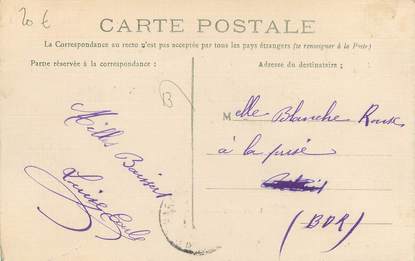 20 €
CARTE POSTALE
La Correspondance au recto n'est pas acceptée par tous les pays étrangers (se renseigner à la Poste)
Partie réservée à la correspondance :
Adresse du destinataire ;
3
Mille Baisers
Louise
Melle Blanche Roux
à la
(BDR)